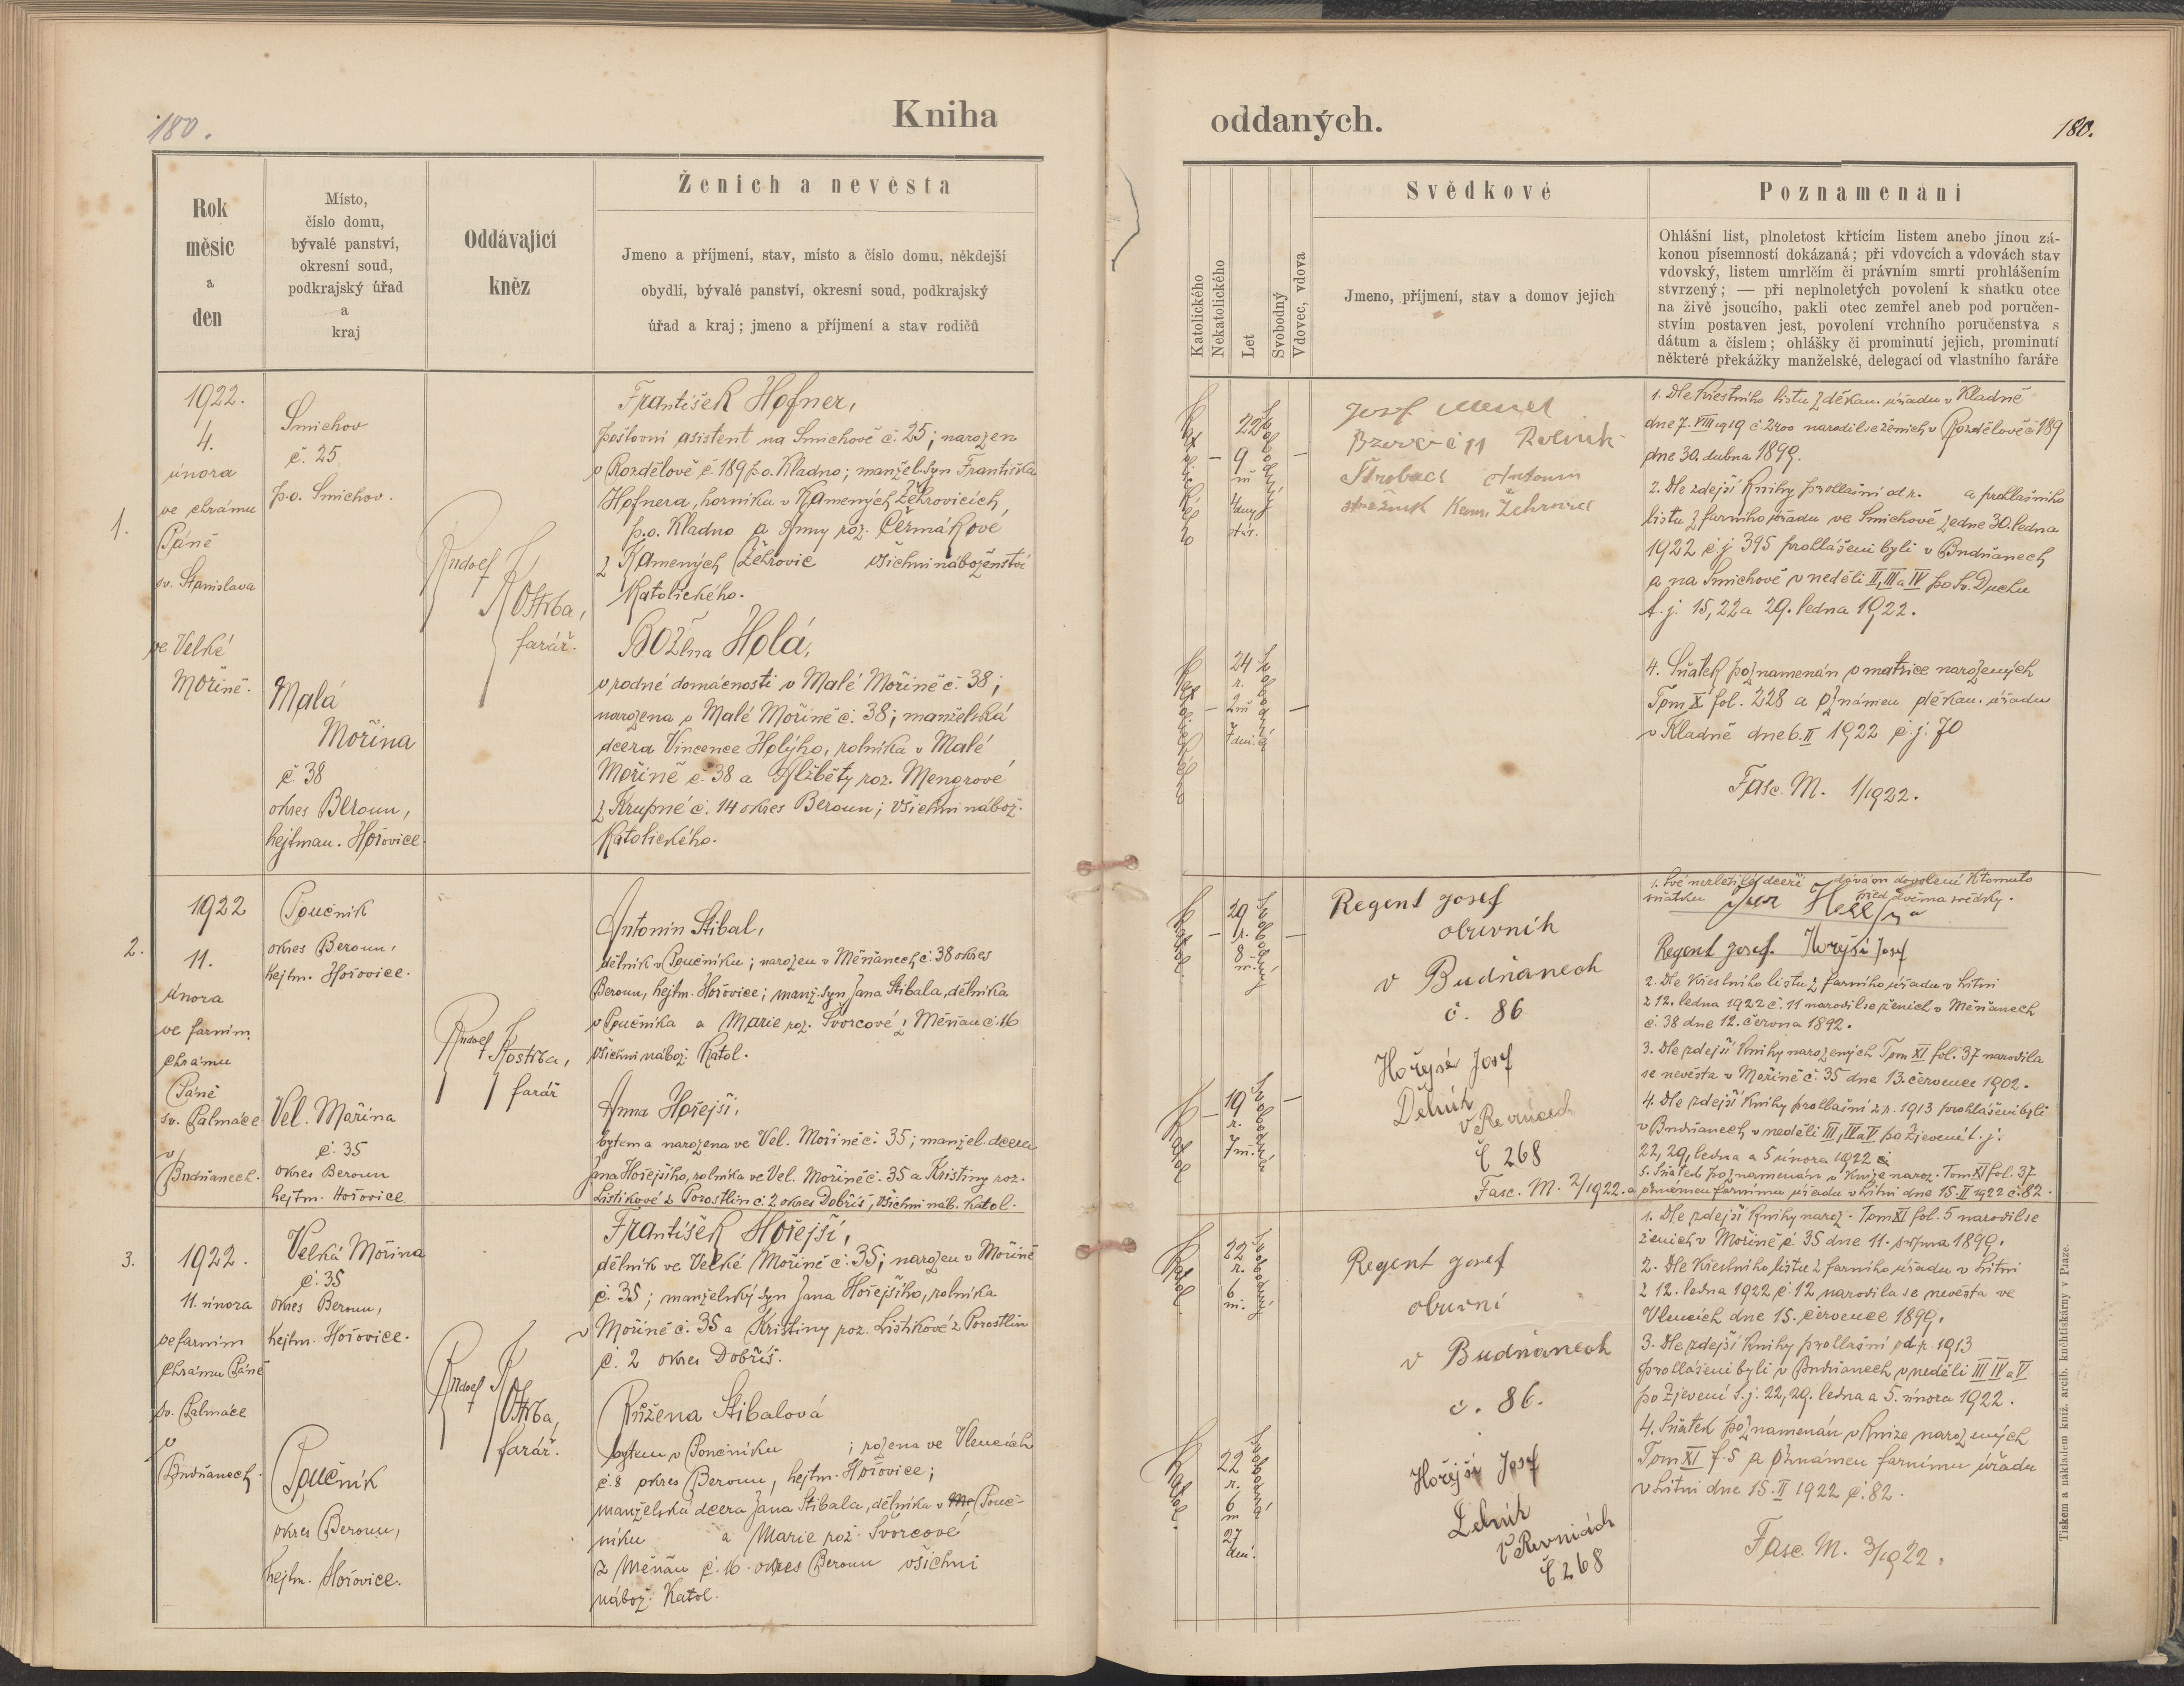 180.
Kniha
Rok
měsíc
a
den
Místo,
číslo domu,
bývalé panství,
okresní soud,
podkrajský úřad
a
kraj
Oddávající
kněz
Ženich a nevěsta
Jmeno a příjmení, stav, místo a číslo domu, někdejší
obydlí, bývalé panství, okresní soud, podkrajský
úřad a kraj; jmeno a příjmení a stav rodičů
1.
1922.
4.
února
ve chrámu
Páně
sv. Stanislava
ve Velké
Mořině.
Smíchov
č. 25
p.o. Smíchov.
Malá
Mořina
č 38
okres Beroun,
hejtman. Hořovice.
Rudolf
Kostrba,
farář.
František Hofner,
poštovní asistent na Smíchově č. 25; narozen
v Rozdělově č. 189 p.o. Kladno; manžel. syn Františka
Hofnera, horníka v Kamených Žehrovicích,
p.o. Kladno a Anny roz. Čermákové
z Kamených Žehrovic všichni náboženství
Katolického.
Božena Holá,
v rodné domácnosti v Malé Mořině č. 38;
narozena v Malé Mořině č. 38; manželská
dcera Vincence Holýho, rolníka v Malé
Mořině č. 38 a Alžběty roz. Mengrové
z Krupné č. 14 okres Beroun; všichni nábož.
Katolického.
2.
1922
11.
února
ve farním
chrámu
Páně
sv. Palmáce
v
Budňanech.
Poučník
okres Beroun,
hejtm. Hořovice.
Vel. Mořina
č. 35
okres Beroun
hejtm. Hořovice
Rudolf Kostrba,
farář
Antonín Stibal,
dělník v Poučníku; narozen v Měňanech č. 38 okres
Beroun, hejtm. Hořovice; manž. syn Jana Stibala, dělníka
v Poučníka a Marie roz. Švorcové z Měňan č. 16
všichni nábož. Katol.
Anna Hořejší,
bytem a narozena ve Vel. Mořině č. 35; manžel. dcera
Jana Hořejšího, rolníka ve Vel. Mořině č. 35 a Kristiny roz.
Lístikové z Porostlin č. 2 okres Dobříš, všichni náb. Katol.
3.
1922.
11. února
ve farním
chrámu Páně
sv. Palmáce
v
Budňanech.
Velká Mořina
č. 35
okres Beroun,
hejtm. Hořovice.
Poučník
okres Beroun,
hejtm. Hořovice.
Rudolf
Kostrba,
farář.
František Hořejší,
dělník ve Velké Mořině č. 35; narozen v Mořině
č. 35; manželský syn Jana Hořejšího, rolníka
v Mořině č. 35 a Kristiny roz. Lístikové z Porostlin
č. 2 okres Dobříš.
Růžena Stibalová
bytem v Poučníku ; rozena ve Vlencích
č. 8 okres Beroun, hejtm. Hořovice;
manželská dcera Jana Stibala, dělníka v Pouč-
níku a Marie roz. Švorcové
z Měňan č. 16. okres Beroun všichni
nábož. Katol.
oddaných.
180.
Katolického
Nekatolického
Let
Svobodný
Vdovec, vdova
Svědkové
Jmeno, příjmení, stav a domov jejich
Poznamenání
Ohlášní list, plnoletost křtícím listem anebo jinou zá-
konou písemností dokázaná; při vdovcích a vdovách stav
vdovský, listem umrlčím či právním smrti prohlášením
stvrzený; — při neplnoletých povolení k sňatku otce
na živě jsoucího, pakli otec zemřel aneb pod poručen-
stvím postaven jest, povolení vrchního poručenstva s
dátum a číslem; ohlášky či prominutí jejich, prominutí
některé překážky manželské, delegací od vlastního faráře
Katolického
22
9
m
4 dny
stár.
Svobodný
Josef
č 11 Rolník
Antonín
Kam. Žehrovice
1. Dle křestního listu z děkan. úřadu v Kladně
dne 7. VIII 1919 č 2200 narodil se ženich v Rozdělově č 189
dne 30. dubna 1899.
2. Dle zdejší Knihy prohlašní od r. a prohlašního
listu z farního úřadu ve Smíchově ze dne 30. ledna
1922 č.j 395 prohlášeni byli v Budňanech
a na Smíchově v neděli II, III a IV po Sv. Duchu
t. j. 15, 22 a 29. ledna 1922.
Katolického
24
r.
2 m
7 dní.
Svobodná
4. Sňatek poznamenán v matrice narozených
Tom X fol. 228 a oznámen děkan. úřadu
v Kladně dne 6. II 1922 č j. 70
Fasc. M. 1/1922.
Katol.
29
r.
8
m.
Svobodný
Regent Josef
obuvník
v Budňanech
č. 86
1. Své nezletilé dceři dávám dovolení k tomuto
sňatku před dvěma svědky.
Regent Josef. Hořejší Josef
2. Dle křestního listu z farního úřadu v Litni
z 12. ledna 1922 č. 11 narodil se ženich v Měňanech
č. 38 dne 12. června 1892.
3. Dle zdejší knihy narozených Tom XI fol. 37 narodila
se nevěsta v Mořině č. 35 dne 13. července 1902.
Katol
19
r.
7 m.
Svobodná
Hořejší Josef
Dělník
v Řevnicech
č 268
4. Dle zdejší Knihy prohlašní z r. 1913 prohlášeni byli
v Budňanech v neděli III, IV a V po Zjevení t. j.
22, 29, ledna a 5 února 1922
5. Sňatek poznamenán v Knize naroz. Tom XI fol. 37
Fasc. M. 2/1922. a oznámen farnímu úřadu v Litni dne 15. II 1922 č. 82.
Katol.
22
r.
6
m.
Svobodný
Regent Josef
obuvní
v Budňanech
č. 86.
1. Dle zdejší Knihy naroz. Tom XI fol. 5 narodil se
ženich v Mořině č. 35 dne 11. srpna 1899.
2. Dle křestního listu z farního úřadu v Litni
z 12. ledna 1922 č. 12 narodila se nevěsta ve
Vlencích dne 15. července 1899.
3. Dle zdejší Knihy prohlašní od r. 1913
prohlášeni byli v Budňanech v neděli III IV a V
po Zjevení t. j. 22, 29. ledna a 5. února 1922.
Katol.
22
r.
6
m
27
dní.
Svobodná
Hořejší Josef
Dělník
v Řevnicích
č 268
4. Sňatek poznamenán v Knize narozených
Tom XI f. 5 a oznámen farnímu úřadu
v Litni dne 15. II 1922 č. 82.
Fasc. M. 3/1922.
Tiskem a nákladem kníž. arcib. knihtiskárny v Praze.